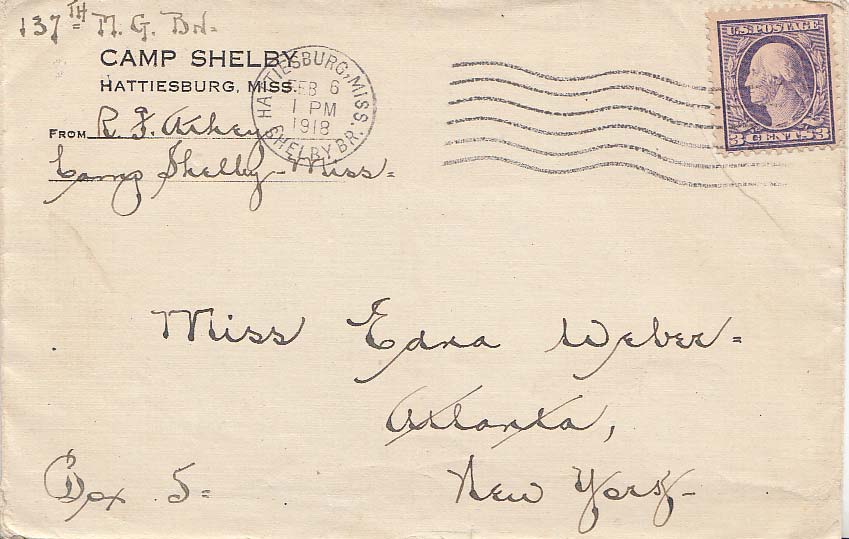 137TH M. G. Bn=
CAMP SHELBY
HATTIESBURG, MISS.
FROM R. F. Athey
Camp Shelby - Miss=
HATTIESBURG, MISS.
FEB 6
1 PM
1918
SHELBY BR.
U.S. POSTAGE
3 CENTS 3
Miss Edna Weber=
Atlanta,
Box 5= New York-